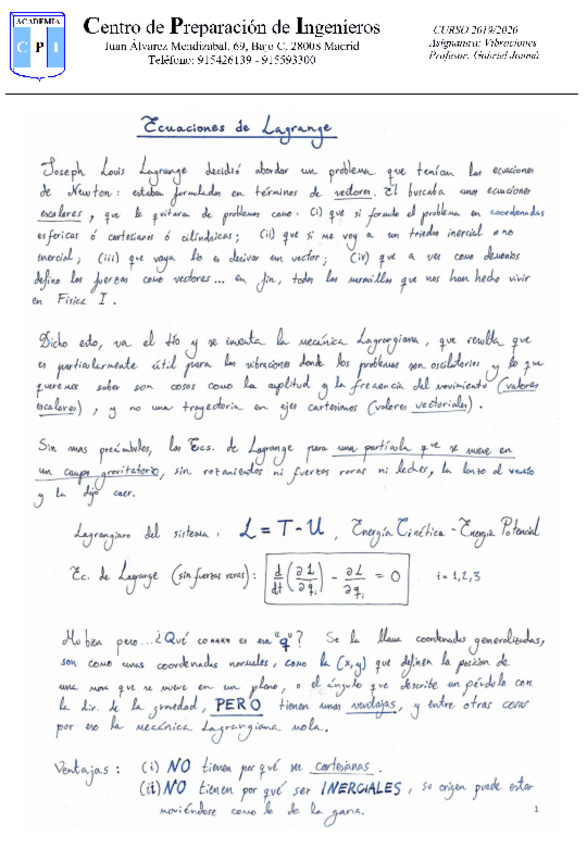 ACADEMIA
C P I
Centro de Preparación de Ingenieros
Juan Álvarez Mendizabal, 69, Bajo C. 28008 Madrid
Teléfono: 915426139 - 915593300
CURSO 2019/2020
Asignatura: Vibraciones
Profesor: Gabriel
Ecuaciones de Lagrange
Joseph Louis Lagrange decidió abordar un problema que tenían las ecuaciones
de Newton: estaban formuladas en términos de vectores. Él buscaba unas ecuaciones
escalares, que le quitara de problemas como: (i) que si formulo el problema en coordenadas
esfericas ó cartesianas ó cilíndricas; (ii) que si me voy a un triedro inercial o no
inercial; (iii) que vaya lío es derivar un vector; (iv) que a ver como demonios
defino las fuerzas como vectores... en fin, todas las movidas que nos han hecho vivir
en Física I.
Dicho esto, va el tío y se inventa la mecánica Lagrangiana, que resulta que
es particularmente útil para las vibraciones donde los problemas son oscilatorios y lo que
queremos saber son cosas como la amplitud y la frecuencia del movimiento (valores
escalares), y no una trayectoria en ejes cartesianos (valores vectoriales).
Sin mas preámbulos, las Ecs. de Lagrange para una partícula que se mueve en
un campo gravitatorio, sin rozamientos ni fuerzas raras ni leches, la lanzo al vacío
y la dejo caer.
Lagrangiano del sistema: L = T - U, Energía Cinética - Energía Potencial
Ec. de Lagrange (sin fuerzas raras): d/dt (∂L/∂q̇i) - ∂L/∂qi = 0 i = 1,2,3
Mu bien pero... ¿Qué es esa "q"? Se la llama coordenadas generalizadas,
son como unas coordenadas normales, como la (x,y) que definen la posicion de
una que se mueve en un plano, o el ángulo que describe un péndulo con
la dir. de la gravedad, PERO tienen unas ventajas, y entre otras cosas
por eso la mecánica Lagrangiana mola.
Ventajas: (i) NO tienen por qué ser cartesianas.
(ii) NO tienen por qué ser INERCIALES, su origen puede estar
moviéndose como le de la gana.
1